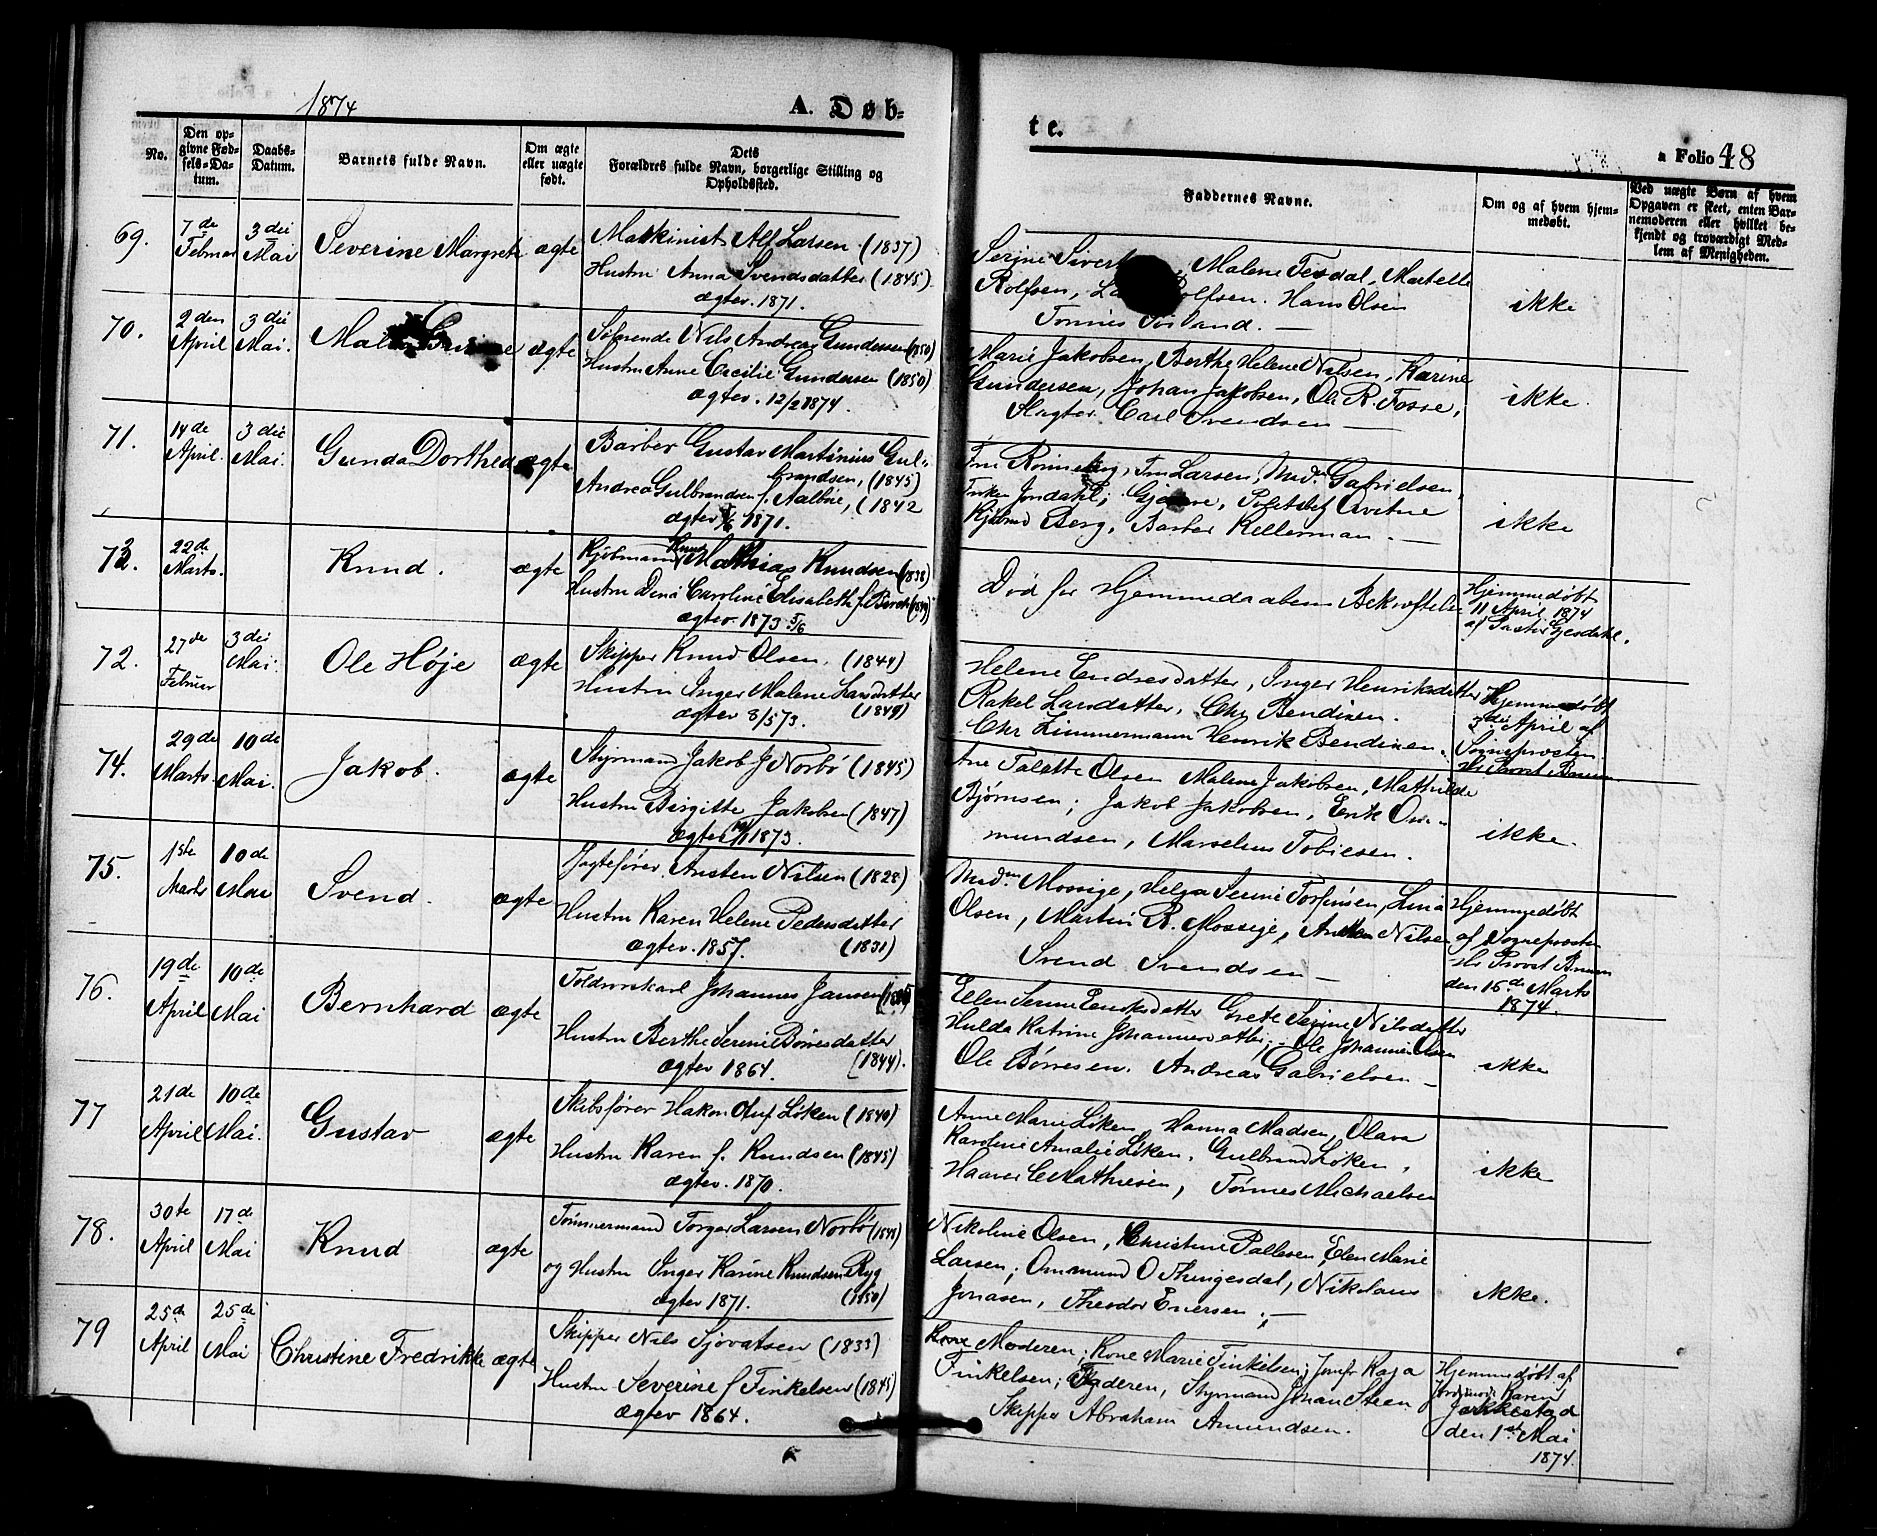 1874
A. Døb-
te.
a Folio 48
No.
Den op-
givne Fød-
sels-Da-
tum.
Daabs-
Datum.
Barnets fulde Navn.
Om ægte
eller uægte
født.
Dets
Forældres fulde Navn, borgerlige Stilling og
Opholdssted.
Faddernes Navne.
Om og af hvem hjem-
medøbt.
Ved uægte Børn af hvem
Opgaven er skeet, enten Bar-
nemoderen eller hvilket be-
kjendt og troværdigt Med-
lem af Menigheden.
69.
7de
Februar
3die
Mai
Severine Margrete
ægte
Maskinist Alf Larsen (1837)
Hustru Anna Svendsdatter (1845)
ægtev. 1871.
Serine Malene Tesdal, Martelle
Rolfsen, Rolfsen. Hans Olsen
Tønnes
ikke
70.
2den
April
3die
Mai.
ægte
Søfarende Nils Andreas Gundersen (1850)
Hustru Anne Cecilie Gundersen (1850)
ægtev. 12/2 1874.
Marie Jakobsen, Berthe Helene Nilsen, Karine
Gundersen, Johan Jakobsen, Ole R. Fosse,
Slagter Carl Svendsen —
ikke.
71.
14de
April.
3die
Mai.
Gunda Dorthea
ægte
Barber Gustav Martinius Gul-
brandsen, (1845)
Andrea Gulbrandsen f. Aalbøe, (1842
ægtev. 1871.
Fru Larsen, Mad. Gabrielsen,
Frøken Jondahl;
Berg, Barber Kellerman. —
ikke
73.
22de
Marts.
Knud.
ægte
Kjøbmand Knud Mathias Knudsen (1838)
Hustru Dina Caroline Elisabeth f.
ægtev. 1873 5/6
Død før Hjemmedaabens Bekræftelse
Hjemmedøbt
11 April 1874
af Pastor Gjesdahl.
72.
27de
Februar
3die
Mai.
Ole Høje
ægte
Skipper Knud Olsen, (1844)
Hustru Inger Malene Larsdatter
ægtev 8/5 73. (1849)
Helene Endresdatter, Inger Henriksdatter
Rakel Larsdatter, Chr Bendixen.
Chr Zimmermann Henrik Bendixen.
Hjemmedøbt
3die April af
Sognepresten
Hr Provst Bruun
74.
29de
Marts.
10de
Mai.
Jakob.
ægte
Styrmand Jakob J Norbø (1845)
Hustru Birgitte Jakobsen (1847)
ægtev 1873.
Ane Talette Olsen Malene Jakobsen, Mathilde
Bjørnsen; Jakob Jakobsen, Erik Om-
mundsen, Marselius Tobiesen.
ikke.
75.
1ste
Marts
10de
Mai
Svend.
ægte
Jagtefører Austen Nilsen (1828)
Hustru Karen Helene Pedersdatter
ægtev. 1857. (1831)
Madm Mossige, Helga Serine Torfinsen, Lina
Olsen, Martin R. Mossige, Nilsen
Svend Svendsen —
Hjemmedøbt
af Sognepresten
Hr Provst Bruun
den 15de Marts
1874.
76.
19de
April
10de
Mai
Bernhard
ægte
Toldroerskarl Johannes Jansen
Hustru Berthe Serine Børresdatter
ægtev 1864. (1844).
Ellen Serine Grete Serine Nilsdatter
Hulda Katrine Johannesdatter; Ole Johannes Olsen
Ole Børresen. Andreas Gabrielsen —
ikke
77
21de
April
10de
Mai.
Gustav
ægte
Skibsfører Hakon Oluf Løken (1840)
Hustru Karen f. Knudsen (1845)
ægtev. 1870.
Anne Marie Løken, Hanna Madsen, Olava
Karoline Amalie Løken, Gulbrand Løken,
Haaver C Mathiesen, Tønnes Michaelsen
ikke
78.
30te
April
17de
Mai
Knud
ægte
Tømmermand Torger Larsen Norbø (1848)
og Hustru Inger Karine Knudsen Ryg
ægtev 1871. (1850)
Nikoline Olsen, Christine Pallesen, Elen Marie
Larsen; Ommund O Thingesdal, Nikolaus
Jonasen, Theodor Enersen; —
ikke.
79
25de
April
25de
Mai
Christine Fredrikke
ægte
Skipper Nils Sjovatsen (1833)
Hustru Severine f Finkelsen (1845)
ægtev 1864.
Moderen; Kone Marie Finkelsen; Jomfr Kaja
Finkelsen; Faderen, Styrmand Johan Steen
Skipper Abraham Amundsen.
Hjemmedøbt af
Jordmoder Karen
den 1ste Mai
1874.